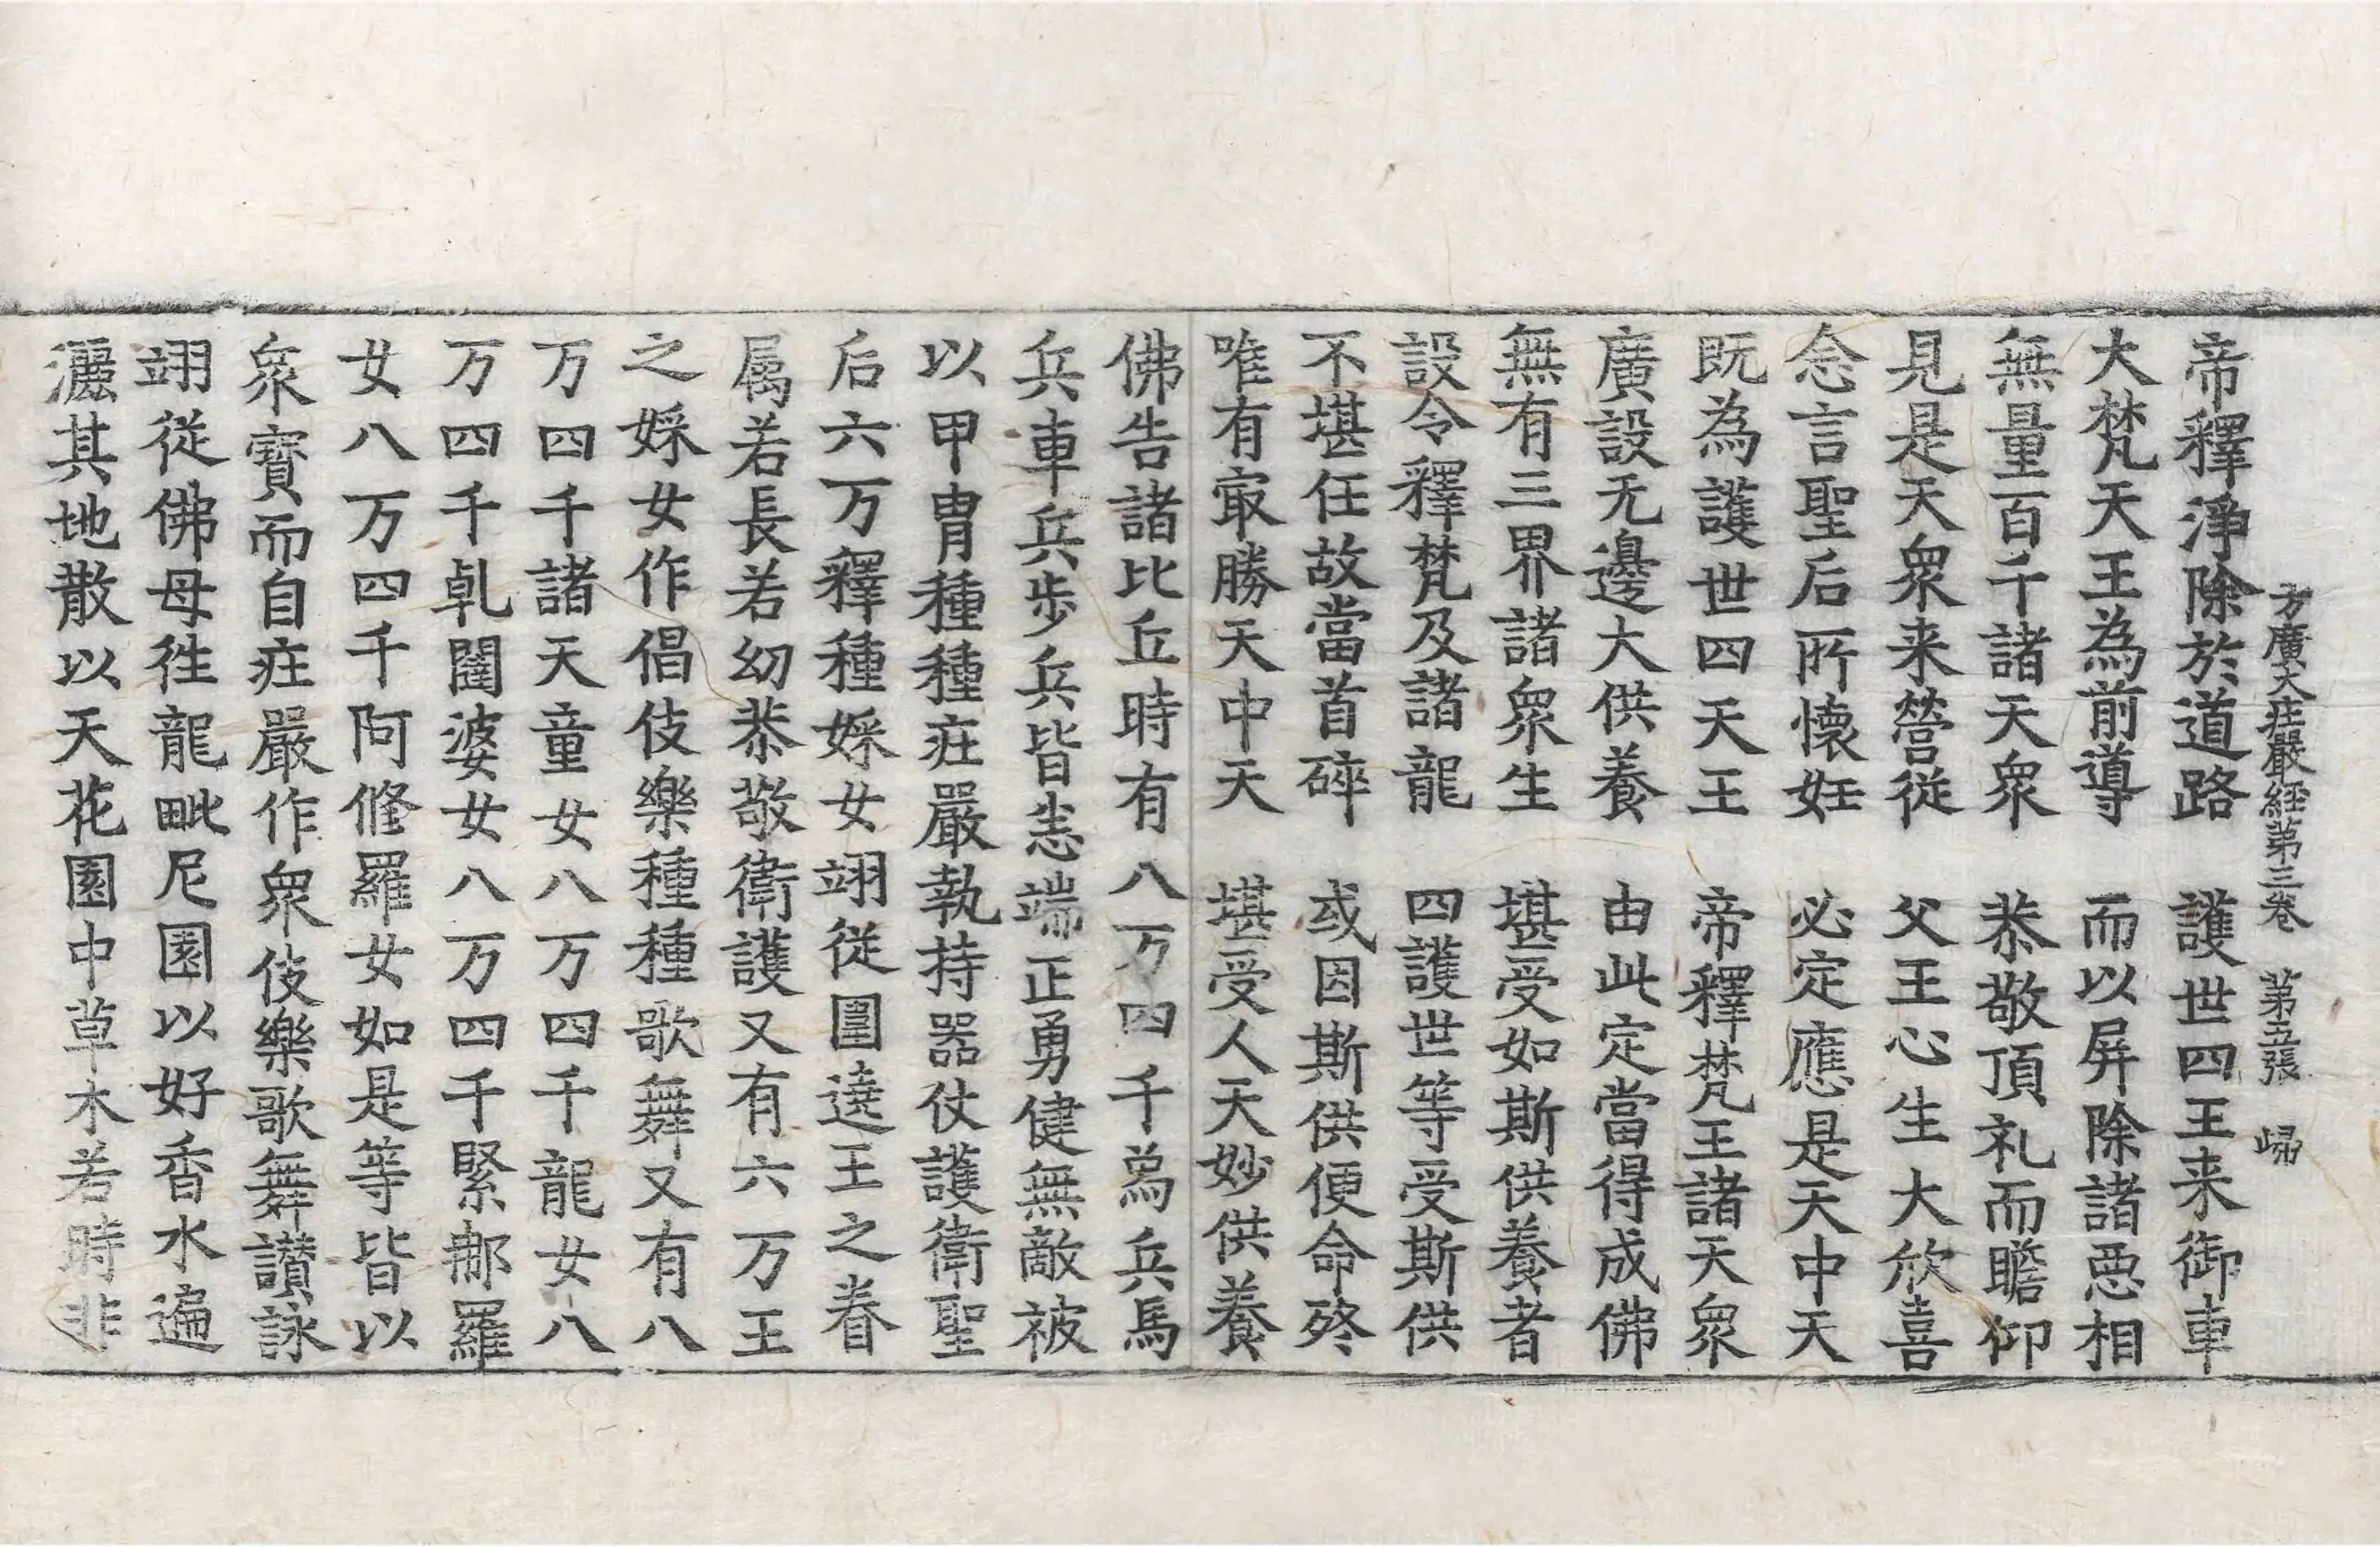 方廣大莊嚴経第三卷　第五張　歸
帝釋淨除於道路　護世四王来御車
大梵天王為前導　而以屏除諸惡相
無量百千諸天衆　恭敬頂礼而瞻仰
見是天衆来營從　父王心生大欣喜
念言聖后所懷妊　必定應是天中天
既為護世四天王　帝釋梵王諸天衆
廣設无邊大供養　由此定當得成佛
無有三界諸衆生　堪受如斯供養者
設令釋梵及諸龍　四護世等受斯供
不堪任故當首碎　或因斯供便命終
唯有㝡勝天中天　堪受人天妙供養
佛告諸比丘時有八万四千𤔡兵馬
兵車兵步兵皆悉端正勇健無敵被
以甲冑種種莊嚴執持器仗護衛聖
后六万釋種婇女翊從圍遶王之眷
属若長若幼恭敬衛護又有六万王
之婇女作倡伎樂種種歌舞又有八
万四千諸天童女八万四千龍女八
万四千乹闥婆女八万四千緊那羅
女八万四千阿修羅女如是等皆以
衆寶而自莊嚴作衆伎樂歌舞讚詠
翊從佛母徃龍毗尼園以好香水遍
灑其地散以天花園中草木若時非